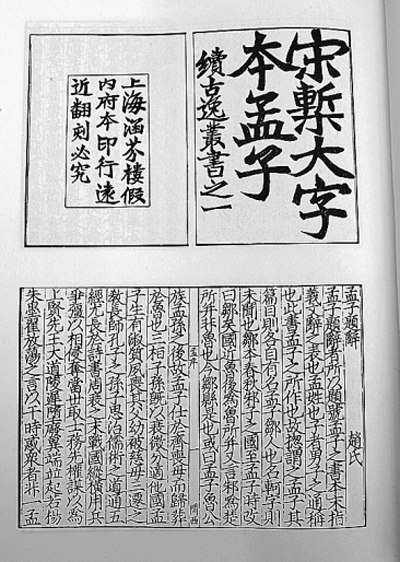 宋槧大字
本孟子
續古逸叢書之一
上海涵芬樓假
内府本印行遠
近翻刻必究
孟子題辭　趙氏
孟子題辭者所以題號孟子之書本末指
義文辭之表也孟姓也子者男子之通稱
也此書孟子之所作也故揔謂之孟子其
篇目則各自有名孟子鄒人也名軻字則
未聞也鄒本春秋邾子之國至孟子時改
曰鄒矣國近魯後爲魯所并又言邾爲楚
所并非魯也今鄒縣是也或曰孟子魯公
族孟孫之後故孟子仕於齊喪母而歸葬
於魯也三桓子孫旣以衰微分適他國孟
子生有淑質夙喪其父幼被慈母三遷之
教長師孔子之孫子思治儒術之道通五
經尤長於詩書周衰之末戰國縱橫用兵
爭彊以相侵奪當世取士務先權謀以爲
上賢先王大道陵遲隳廢異端並起若楊
朱墨翟放蕩之言以干時惑衆者非一孟